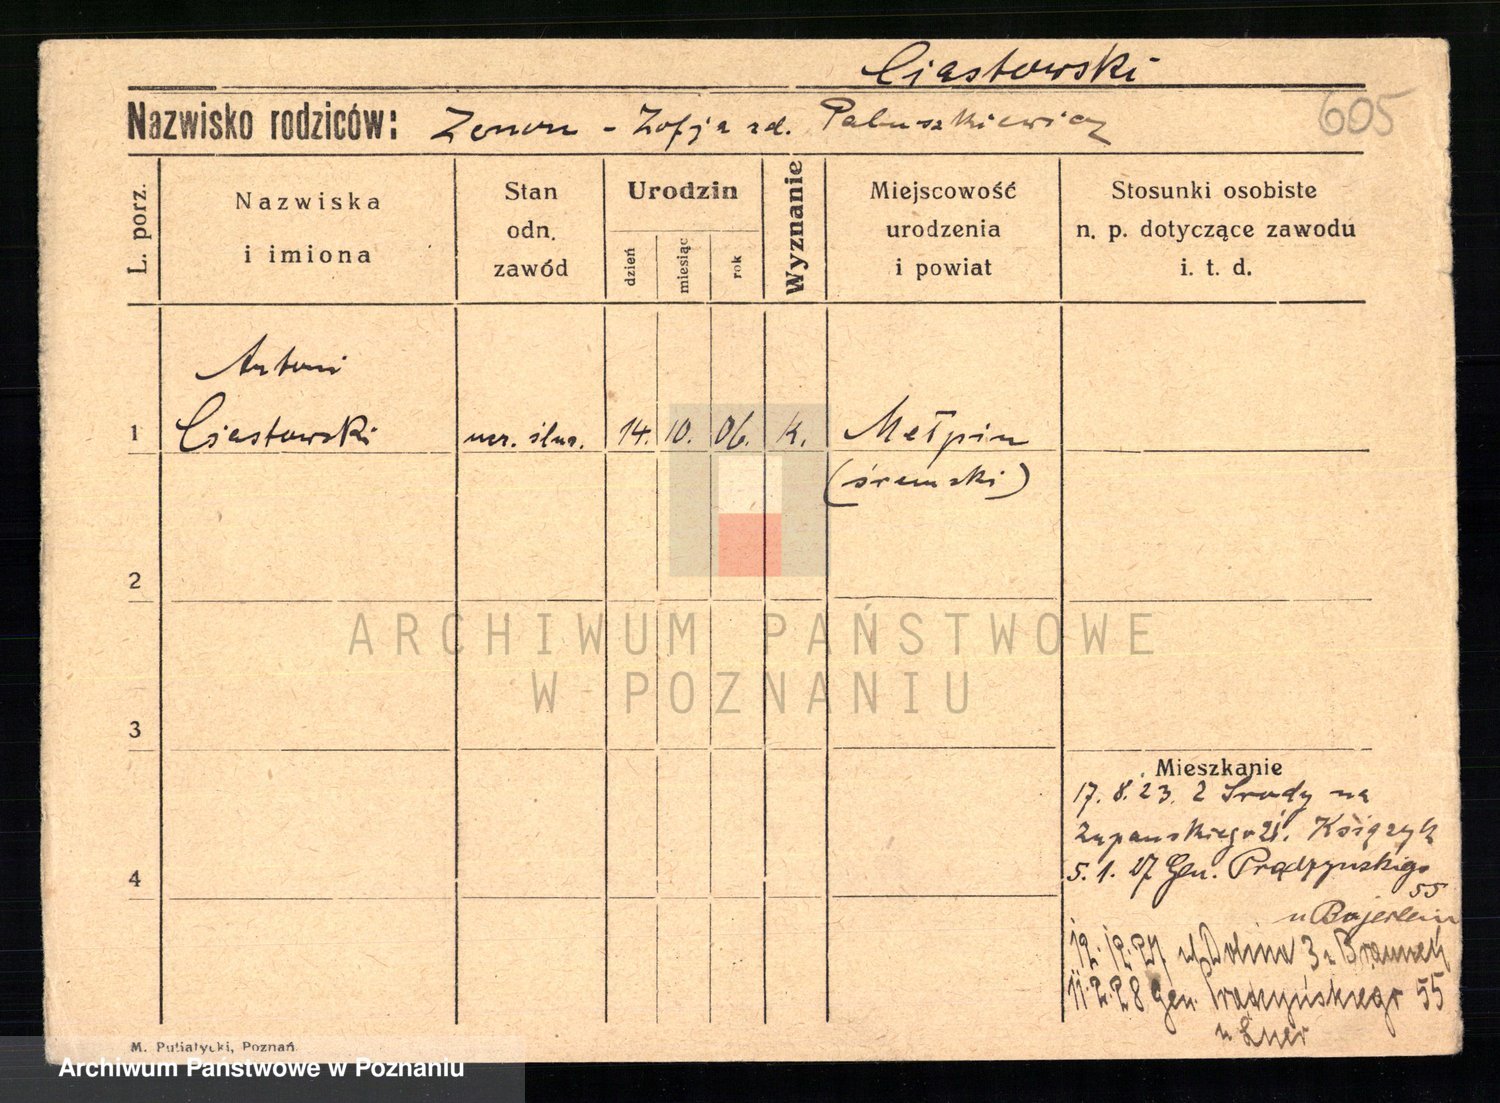 Ciastowski
Nazwisko rodziców: Zenon - Zofja zd. Paluszkiewicz
605
L. porz.
Nazwiska
i imiona
Stan
odn.
zawód
Urodzin
dzień
miesiąc
rok
Wyznanie
Miejscowość
urodzenia
i powiat
Stosunki osobiste
n. p. dotyczące zawodu
i. t. d.
Antoni
1 Ciastowski ucz. ślus. 14. 10. 06. K. Mełpin
(śremski)
2
ARCHIWUM PAŃSTWOWE
W POZNANIU
3
4
Mieszkanie
17. 8. 23. z Środy na
Żupańskiego 21. Księżyk
5. 1. 27 Gen. Prądzyńskiego
55
u Bajerlein
12. 12. 27 Dolina 3
11. 2. 28 Gen. Prądzyńskiego 55
u
M. Putiatycki, Poznań.
Archiwum Państwowe w Poznaniu